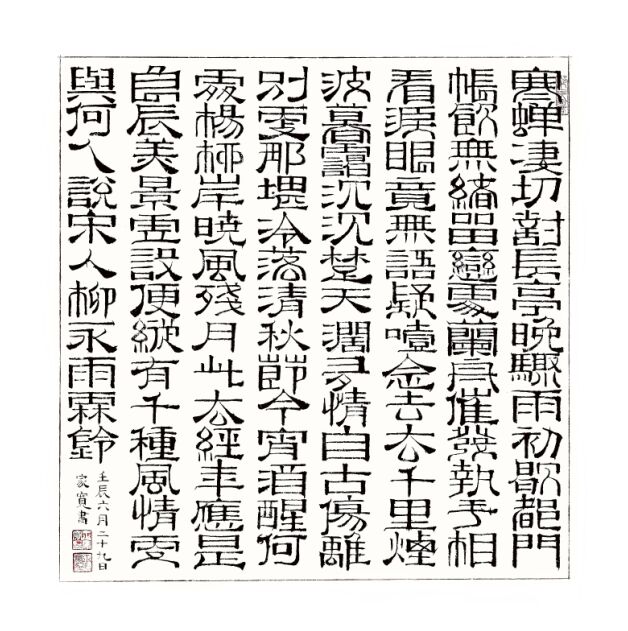 寒蟬淒切對長亭晚驟雨初歇都門
帳飲無緒留戀處蘭舟催發執手相
看淚眼竟無語凝噎念去去千里煙
波暮靄沉沉楚天闊多情自古傷離
別更那堪冷落清秋節今宵酒醒何
處楊柳岸曉風殘月此去經年應是
良辰美景虛設便縱有千種風情更
與何人說宋人柳永雨霖鈴
壬辰六月二十九日
家寬書